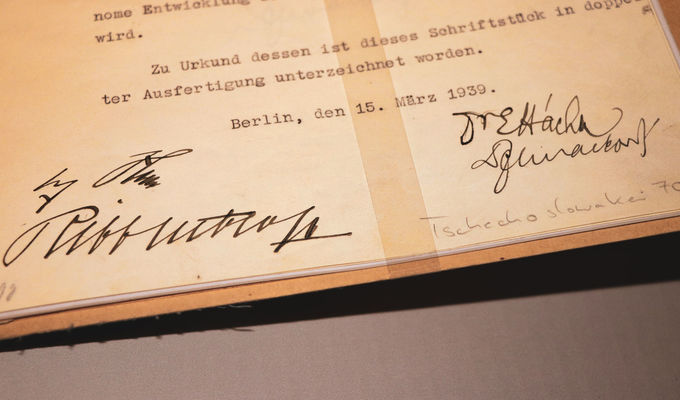 nome Entwicklung
wird.
Zu Urkund dessen ist dieses Schriftstück in doppel
ter Ausfertigung unterzeichnet worden.
Berlin, den 15. März 1939.
Dr E Hácha
Ribbentrop
Tschechoslowakei 70